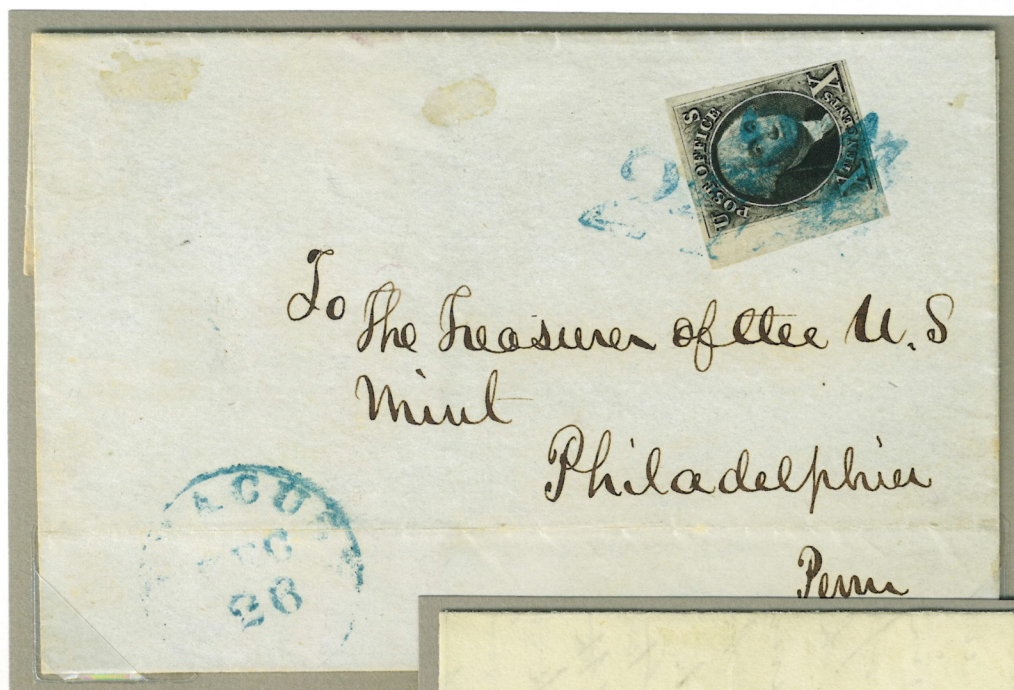 POST OFFICE
U S
X X
CENTS
To
The Treasurer of the U.S
Mint
Philadelphia
Penn
ACU
DEC
26